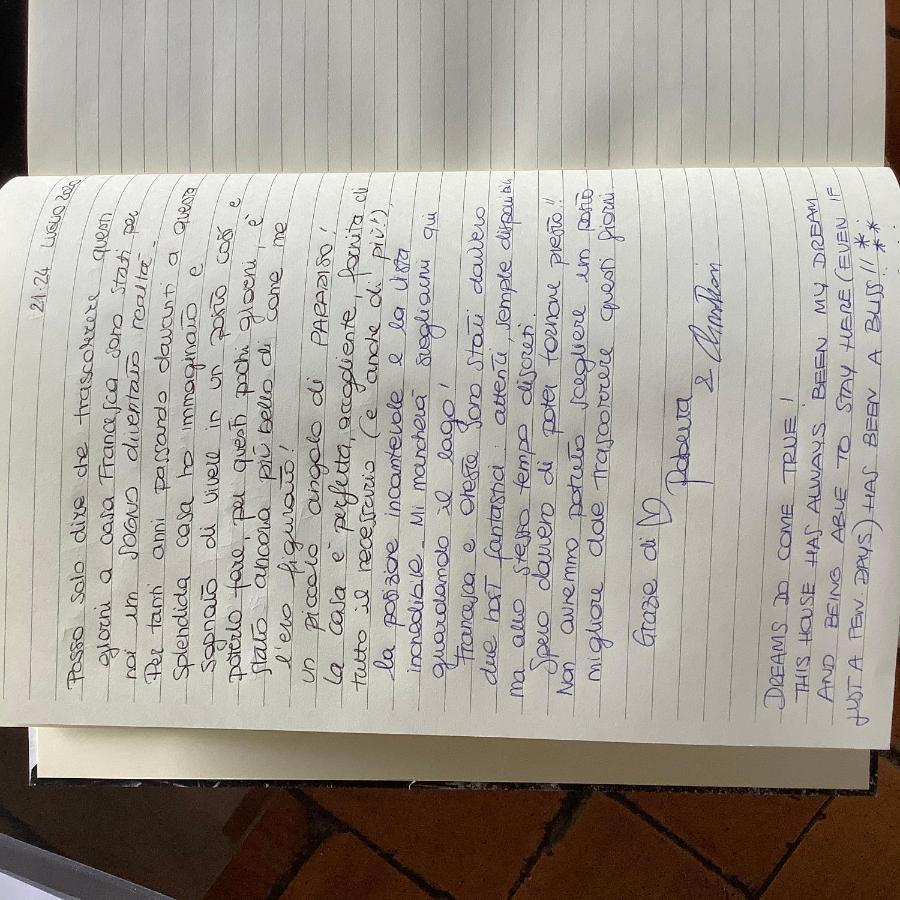 21-24 LUGLIO 2020
Posso solo dire che trascorrere questi
giorni a casa Francesca sono stati per
noi un SOGNO diventato realtà.
Per tanti anni passando davanti a questa
splendida casa ho immaginato e
sognato di vivere in un posto così e
poterlo fare, per questi pochi giorni, è
stato ancora più bello di come me
l'ero figurato!
un piccolo angolo di PARADISO!
la casa è perfetta, accogliente, fornita di
tutto il necessario (e anche di più!),
la posizione incantevole e la vista
incredibile. Mi mancherà svegliarmi qui
guardando il lago!
Francesca e Oreste sono stati davvero
due host fantastici: attenti, sempre disponibili
ma allo stesso tempo discreti.
Spero davvero di poter tornare presto!!
Non avremmo potuto scegliere un posto
migliore dove trascorrere questi giorni.
Grazie di ♡
Roberta
&
DREAMS DO COME TRUE!
THIS HOUSE HAS ALWAYS BEEN MY DREAM
AND BEING ABLE TO STAY HERE (EVEN IF
JUST A FEW DAYS) HAS BEEN A BLISS!! ***